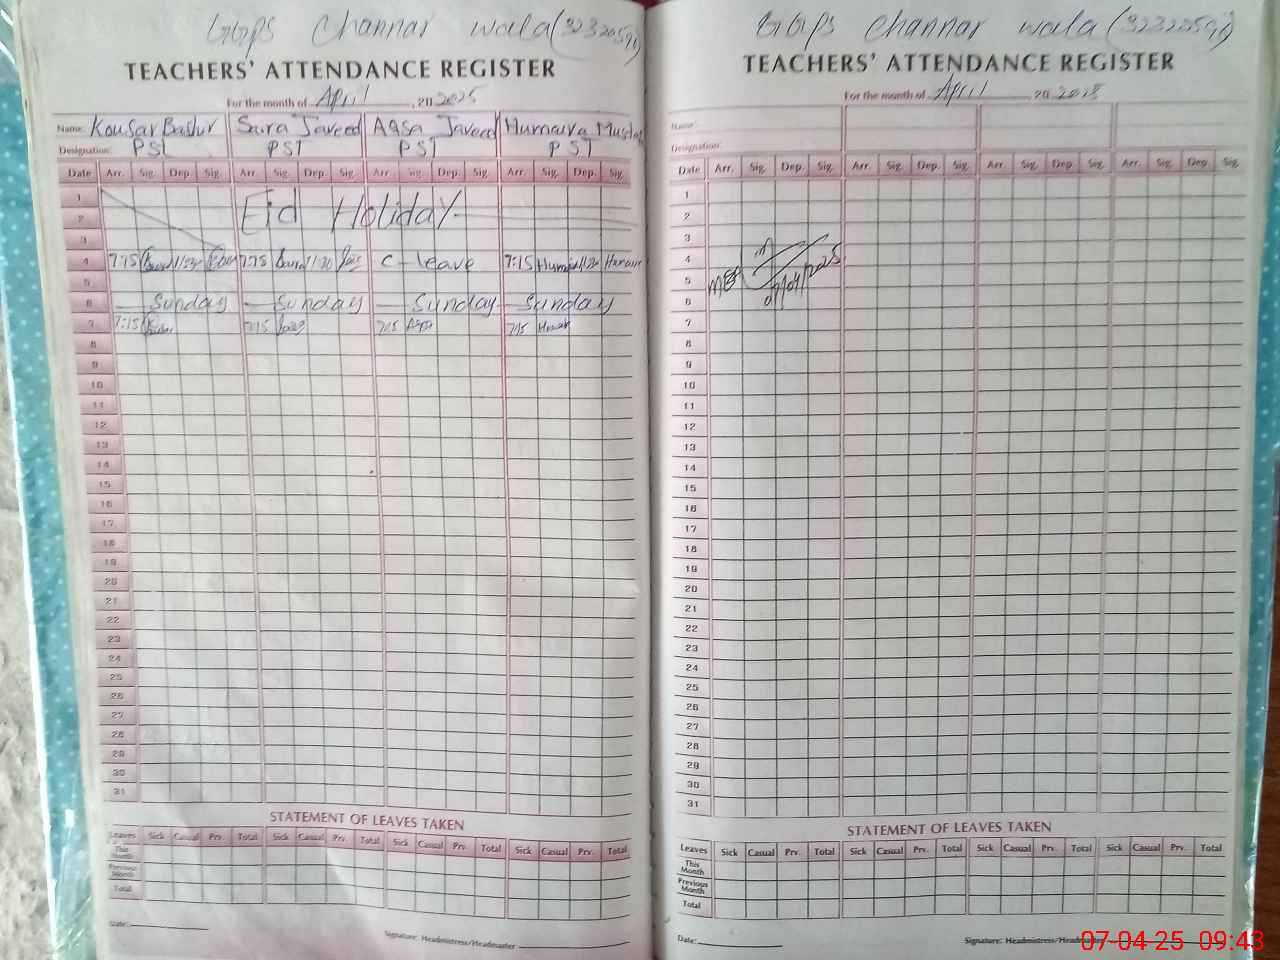 GGPS Channar wala (32320591)
TEACHERS' ATTENDANCE REGISTER
For the month of April , 20 2025
Name: Kousar Bashir Saira Javeed Aqsa Javeed Humaira Mustaf
Designation: PST PST PST PST
Date Arr. Sig. Dep. Sig. Arr. Sig. Dep. Sig. Arr. Sig. Dep. Sig. Arr. Sig. Dep. Sig.
1
2 Eid Holiday
3
4 7:15 11:30 7:15 11:30 C-leave 7:15 Humaira 11:30 Humaira
5
6 Sunday Sunday Sunday Sunday
7 7:15 7:15 7:15 Aqsa 7:15
8
9
10
11
12
13
14
15
16
17
18
19
20
21
22
23
24
25
26
27
28
29
30
31
STATEMENT OF LEAVES TAKEN
Leaves Sick Casual Prv. Total Sick Casual Prv. Total Sick Casual Prv. Total Sick Casual Prv. Total
This Month
Previous Month
Total
Date:
Signature: Headmistress/Headmaster
GGPS Channar wala (32320591)
TEACHERS' ATTENDANCE REGISTER
For the month of April , 20 2025
Name:
Designation:
Date Arr. Sig. Dep. Sig. Arr. Sig. Dep. Sig. Arr. Sig. Dep. Sig. Arr. Sig. Dep. Sig.
1
2
3
4
5 07/04/2025
6
7
8
9
10
11
12
13
14
15
16
17
18
19
20
21
22
23
24
25
26
27
28
29
30
31
STATEMENT OF LEAVES TAKEN
Leaves Sick Casual Prv. Total Sick Casual Prv. Total Sick Casual Prv. Total Sick Casual Prv. Total
This Month
Previous Month
Total
Date:
Signature: Headmistress/Headmaster
07-04-25 09:43